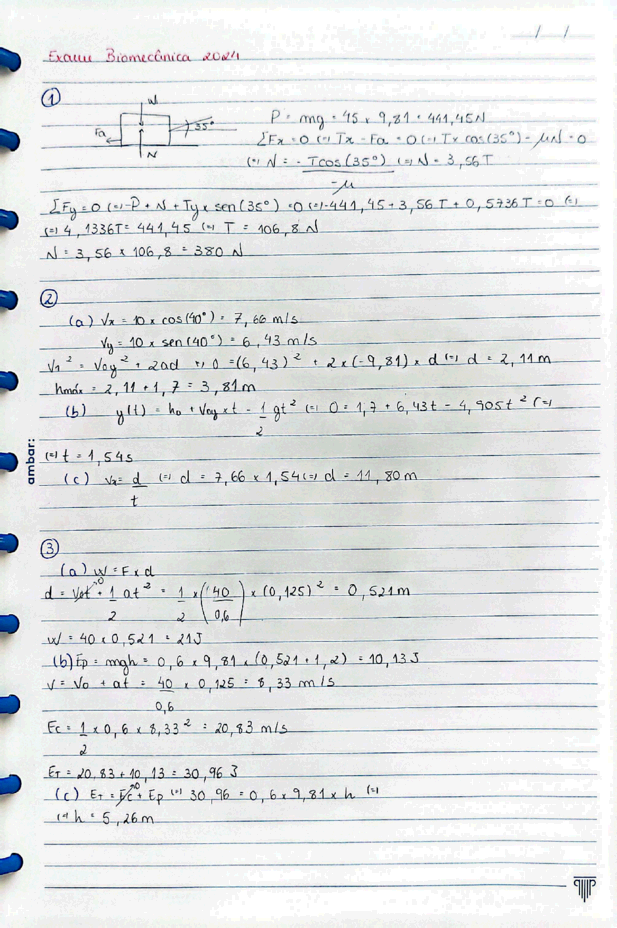 / /
Exame Biomecânica 2024
①
W
Fa
35°
N
P = mg = 45 x 9,81 = 441,45N
ΣFx = 0 (=) Tx - Fa = 0 (=) Tx cos(35°) - μN = 0
(=) N = - Tcos(35°) (=) N = 3,56T
-μ
ΣFy = 0 (=) -P + N + Ty x sen(35°) = 0 (=) -441,45 + 3,56T + 0,5736T = 0 (=)
(=) 4,1336T = 441,45 (=) T = 106,8 N
N = 3,56 x 106,8 = 380 N
②
(a) Vx = 10 x cos(40°) = 7,66 m/s
Vy = 10 x sen(40°) = 6,43 m/s
V1² = Voy² + 2ad (=) 0 = (6,43)² + 2 x (-9,81) x d (=) d = 2,11m
hmáx = 2,11 + 1,7 = 3,81m
(b) y(t) = ho + Voy x t - 1/2 gt² (=) 0 = 1,7 + 6,43t - 4,905t² (=)
ambar:
(=) t = 1,54s
(c) Vx = d/t (=) d = 7,66 x 1,54 (=) d = 11,80m
③
(a) W = F x d
d = Vot + 1/2 at² = 1/2 x (40/0,6) x (0,125)² = 0,521m
0
W = 40 x 0,521 = 21J
(b) Ep = mgh = 0,6 x 9,81 x (0,521 + 1,2) = 10,13J
V = Vo + at = 40/0,6 x 0,125 = 8,33 m/s
Ec = 1/2 x 0,6 x 8,33² = 20,83 m/s
ET = 20,83 + 10,13 = 30,96 J
(c) ET = Ec + Ep (=) 30,96 = 0,6 x 9,81 x h (=)
0
(=) h = 5,26m